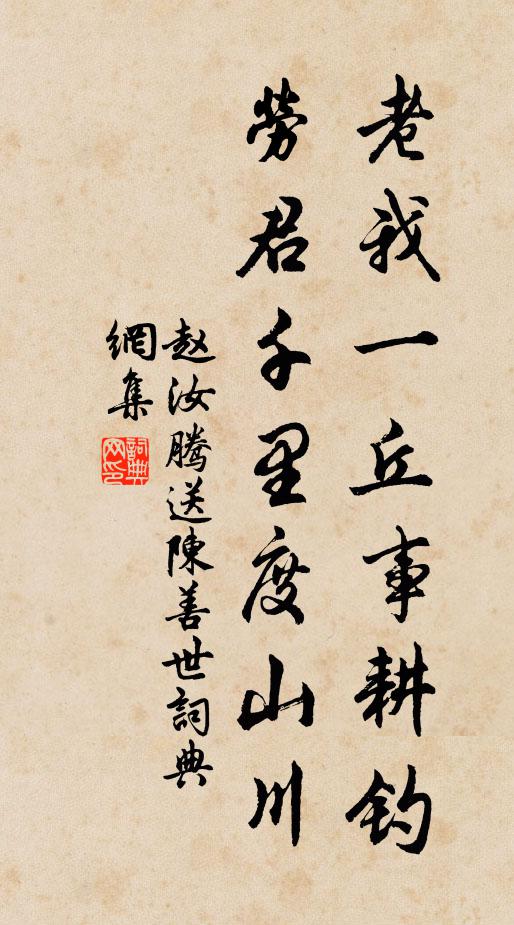 老我一丘事耕钓
勞君千里度山川
赵汝腾送陳善世詞典
網集
詞典
网印